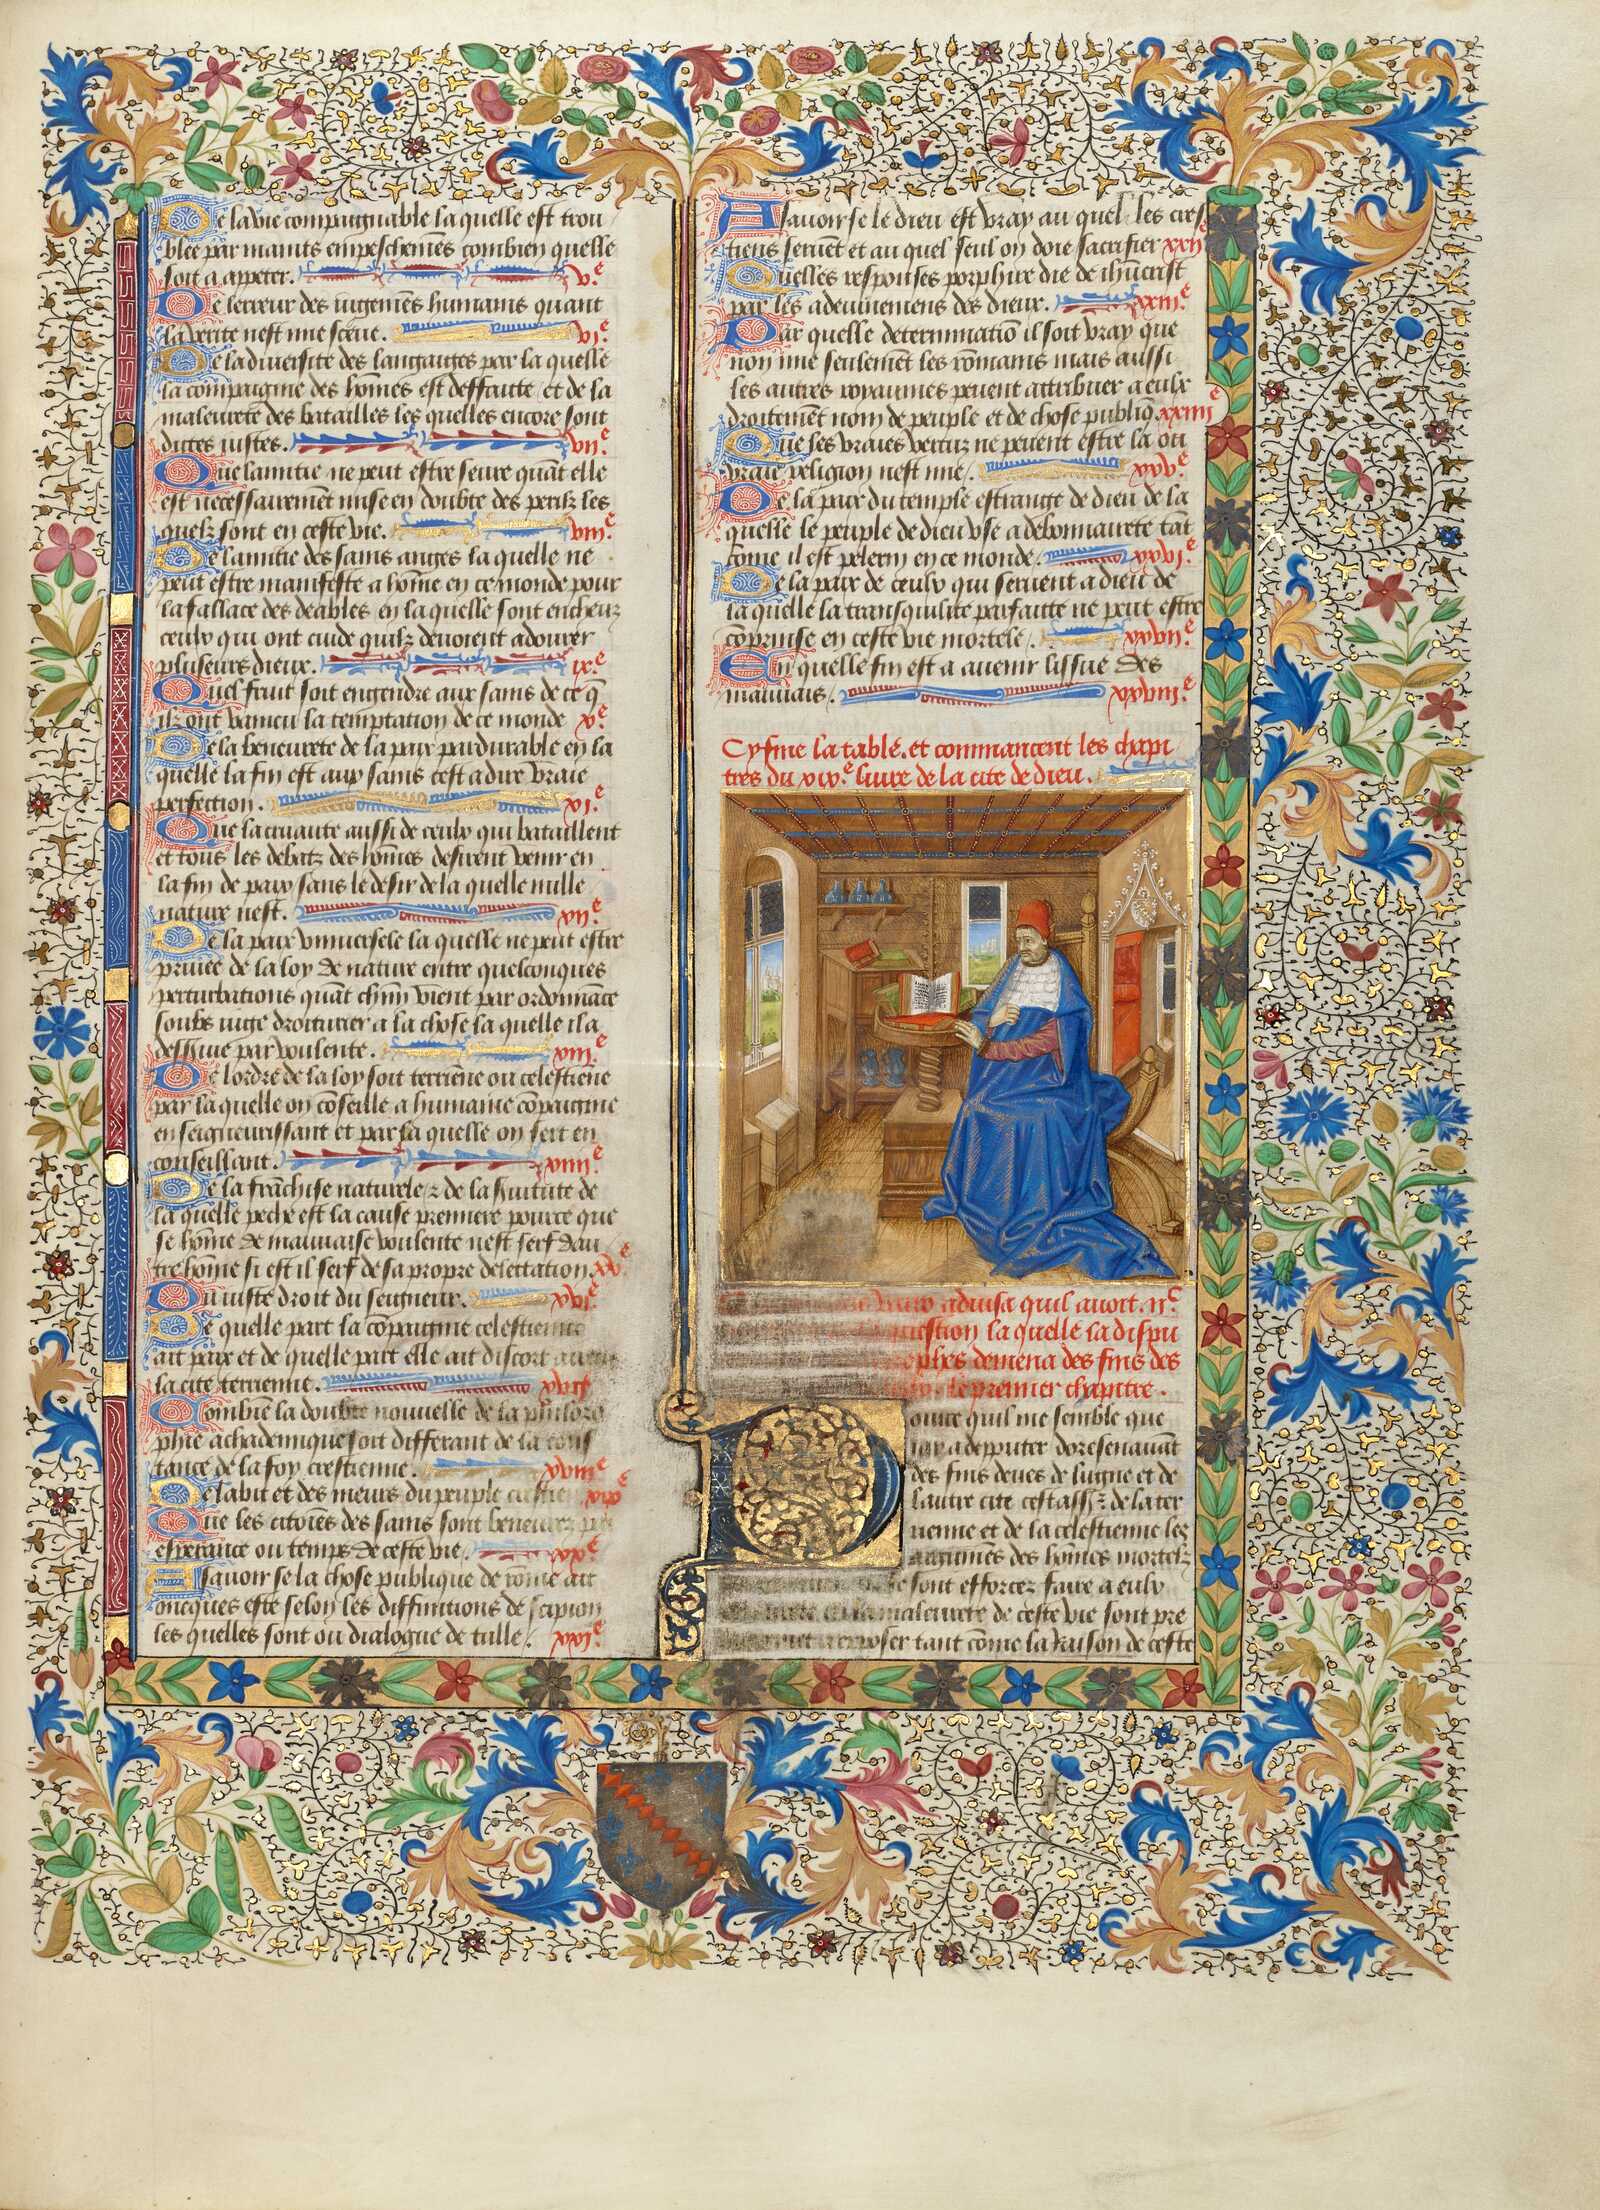 De la vie compaignable la quelle est trou
blee par maints empeschemēs combien quelle
soit a appeter. vᵉ.
De lerreur des iugemēs humains quant
la verite nest mie sceue. viᵉ.
De la diversite des langaiges par la quelle
la compaignie des hōmes est deffaitte et de la
maleurete des batailles les quelles encore sont
dittes iustes. viiᵉ.
Que lamitie ne peut estre seure quāt elle
est necessairemēt mise en doubte des perilz les
quelz sont en ceste vie. viiiᵉ.
De lamitie des sains anges la quelle ne
peut estre manifeste a hōme en ce monde pour
la fallace des deables en la quelle sont encheuz
ceulx qui ont cuide quilz devoient adourer
pluseurs dieux. ixᵉ.
Quel fruit soit engendre aux sains de ce q̄
ilz ont vaincu la temptation de ce monde xᵉ.
De la beneurete de la paix pardurable en la
quelle la fin est aux sains cest a dire vraie
perfection. xiᵉ.
Que la cruaute aussi de ceulx qui bataillent
et tous les debatz des hōmes desirent venir en
la fin de paix sans le desir de la quelle nulle
nature nest. xiiᵉ.
De la paix universele la quelle ne peut estre
privee de la loy de nature entre quelconques
perturbations quāt chm̄ vient par ordonnāce
soubz iuge droiturier a la chose la quelle il a
desservie par voulente. xiiiᵉ.
De lordre de la loy soit terriēne ou celestiēne
par la quelle on cōseille a humaine cōpaignie
en seigneurissant et par la quelle on sert en
conseillant. xiiiiᵉ.
De la frāchise naturele et de la s̄uitute de
la quelle peche est la cause premiere pource que
se hōme de mauvaise voulente nest serf dau
tre hōme si est il serf de sa propre delettation. xvᵉ.
Du iuste droit du seigneur. xviᵉ.
De quelle part la cōpaignie celestienne
ait paix et de quelle part elle ait discort avec
la cite terrienne. xviiᵉ.
Combiē la doubte nouvelle de la philozo
phie achademique soit differant de la cons
tance de la foy crestienne. xviiiᵉ.
De labit et des meurs du peuple crestien xixᵉ.
Que les citoiēs des sains sont beneurez par
esperance ou temps de ceste vie. xxᵉ.
A savoir se la chose publique de rome ait
oncques este selon les diffinitions de scipion
les quelles sont ou dialogue de tulle. xxiᵉ.
A savoir se le dieu est vray au quel les cres
tiens servēt et au quel seul on doie sacrifier xxiiᵉ.
Quelles responses porphire die de ihūcrist
par les adevinemens des dieux. xxiiiᵉ.
Par quelle determinatiō il soit vray que
non mie seulemēt les rōmains mais aussi
les autres royaumes peuent attribuer a eulx
droitemēt nom de peuple et de chose publiq̄. xxiiiiᵉ.
Que les vraies vertuz ne peuent estre la ou
vraie religion nest mie. xxvᵉ.
De la paix du temple estrange de dieu de la
quelle le peuple de dieu use a debonnairete tāt
cōme il est pelerin en ce monde. xxviᵉ.
De la paix de ceulx qui servent a dieu de
la quelle la transquilite parfaitte ne peut estre
cōprinse en ceste vie mortele. xxviiᵉ.
En quelle fin est a avenir lissue des
mauvais. xxviiiᵉ.
Cy fine la table. et commancent les chapi
tres du xixᵉ livre de la cite de dieu.
advisa quil avoit. iiᶜ
question la quelle la dispu
demena des fins des
le premier chapitre.
Pource quil me semble que
iay a desputer doresenavāt
des fins deues de lugne et de
lautre cite cest ass̄. de la ter
rienne et de la celestienne les
argumēs des hōmes mortelz
se sont efforcez faire a eulx
la maleurete de ceste vie sont pre
exposer tant cōme la raison de ceste